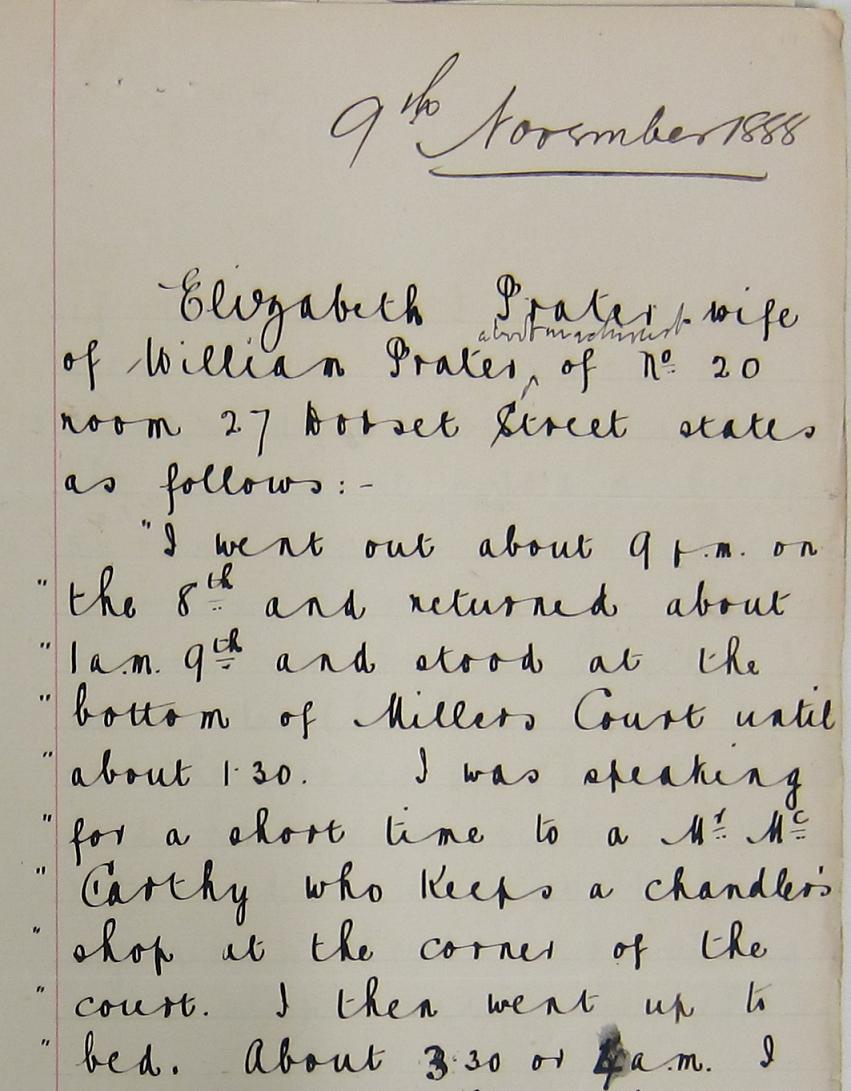 9th November 1888
Elizabeth Prater wife
a boot machinist
of William Prater, of No. 20
room 27 Dorset Street states
as follows:-
"I went out about 9 p.m. on
" the 8th and returned about
" 1 a.m. 9th and stood at the
" bottom of Millers Court until
" about 1.30. I was speaking
" for a short time to a Mr. Mc
" Carthy who keeps a chandler's
" shop at the corner of the
" court. I then went up to
" bed. About 3.30 or 4 a.m. I